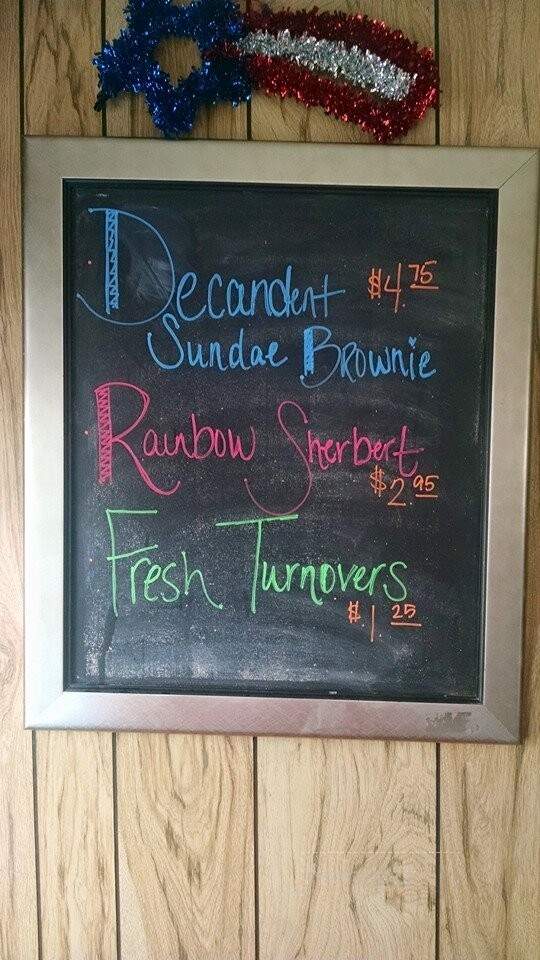 Decandent $4.75
Sundae Brownie
Rainbow Sherbert
$2.95
Fresh Turnovers
$1.25